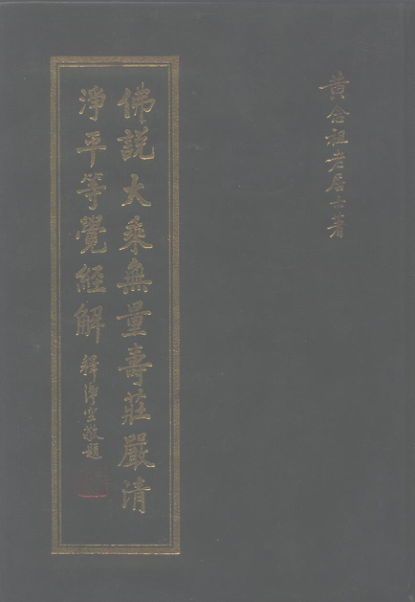 黄念祖老居士著
佛說大乘無量壽莊嚴清
淨平等覺經解
釋淨空敬題